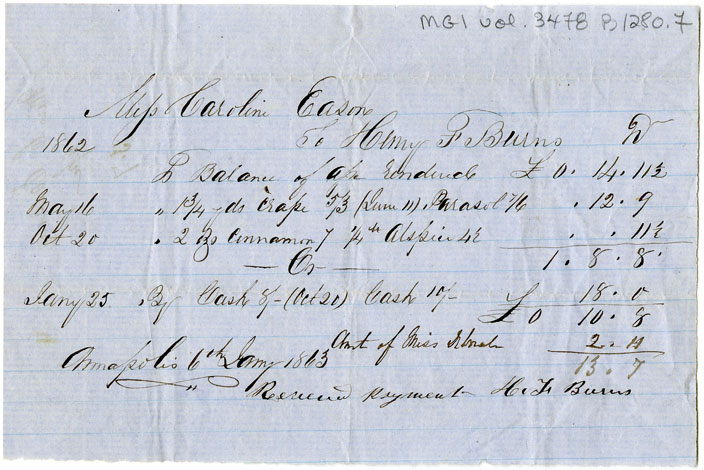 MG1 vol. 3478 B1280.7
Miss Caroline Eason
1862 To Henry F Burns Dr
To Balance of a/c rendered £ 0. 14. 11½
May 16 " 1 3/4 yds Crape 3/3 (June 11) Parasol 7/6 . 12. 9
Oct 20 " 2 oz Cinnamon 7 1/4 lb Alspice 4½ . . 11½
— Cr — 1. 8. 8
Jany 25 " By Cash 8/- (Oct 20) Cash 10/- £ 18. 0
£ 0 10. 8
Amt of Miss 2. 11
Annapolis 6th Jany 1863 13. 7
" Received payment H. F. Burns